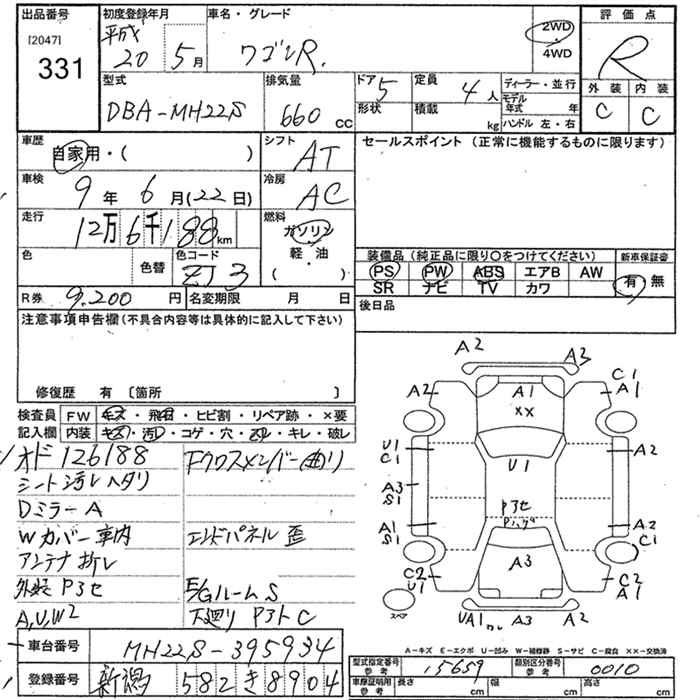 出品番号 初度登録年月 車名・グレード 評価点
[2047] 平成 2WD
331 20 5月 ワゴンR. ・4WD R
型式 排気量 ドア 5 定員 4人 ディーラー・並行 外装 内装
DBA-MH22S 660cc 形状 積載 kg モデル年式 年 C C
ハンドル 左・右
車歴 自家用・( ) シフト AT セールスポイント (正常に機能するものに限ります)
車検 9年 6月(22日) 冷房 AC
走行 12万6千188km 燃料 ガソリン
色 色替 色コード ZJ3 軽・油 ( )
装備品 (純正品に限り○をつけてください) 新車保証書
PS PW ABS エアB AW 有・無
SR ナビ TV カワ
R券 9.200円 名変期限 月 日 後日品
注意事項申告欄(不具合内容等は具体的に記入して下さい)
修復歴 有 〔箇所 〕
検査員 FW キズ・飛石・ヒビ割・リペア跡・×要
記入欄 内装 キズ・汚レ・コゲ・穴・スレ・キレ・破レ
オド 126188 Fクロスメンバー(曲り)
シート汚レ ヘタリ
DミラーA
Wカバー車内 エンドパネル歪
アンテナ折レ
外装 P3セ E/GルームS
A,U,W2 下廻り P3ト C
A2 A3
A2 A1 C1 A1
××
U1 C1 U1 A2
A3 S1
P3セ
A1 S1 A2 C1
C2 U1 A3 C2 A1
スペア UA1 A3 A2
A-キズ E-エクボ U-凹み W-補修跡 S-サビ C-腐食 ××-交換済
車台番号 MH22S-395934
登録番号 新潟 582 き 8904
型式指定番号 参考 15659 類別区分番号 参考 0010
車庫証明記録 参考 長さ cm 幅 cm 高さ cm